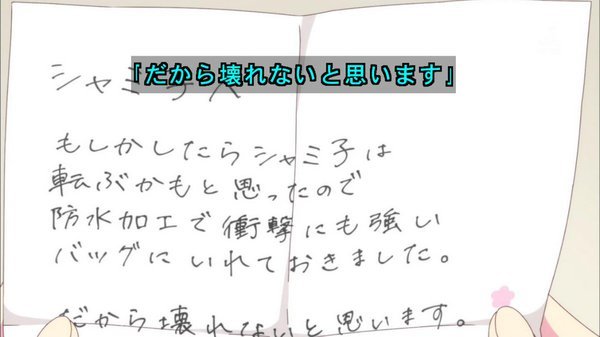 「だから壊れないと思います」
シャミ子へ
もしかしたらシャミ子は
転ぶかもと思ったので
防水加工で衝撃にも強い
バッグにいれておきました。
だから壊れないと思います。